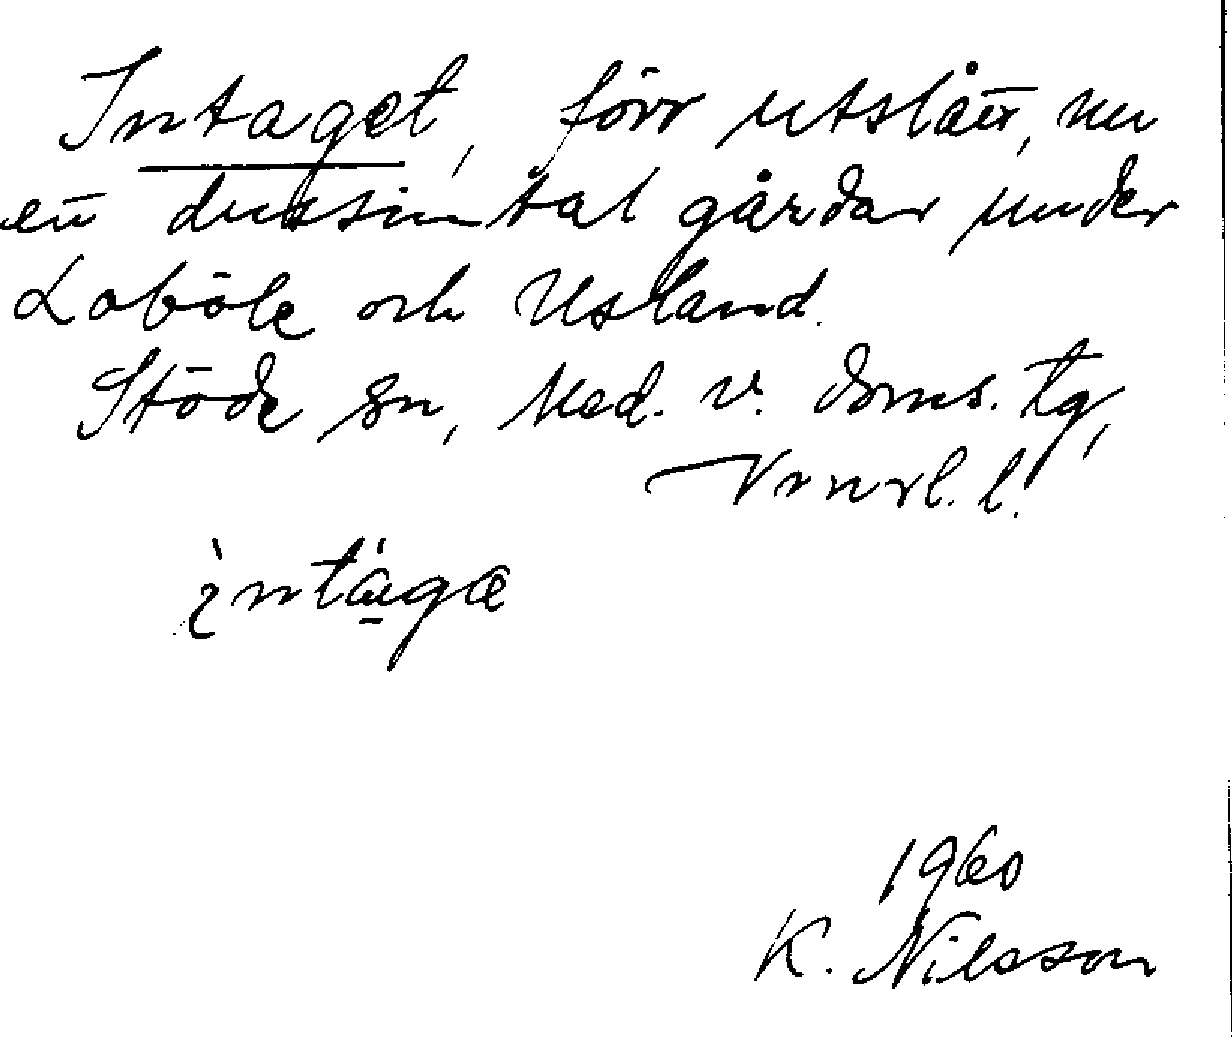 Intaget, förr utslått, nu
ett dussintal gårdar under
Loböle och Usland.
Stöde sn, Med. v. doms. tg,
Vnrl. l.
ìntàgæ
1960
K. Nilsson